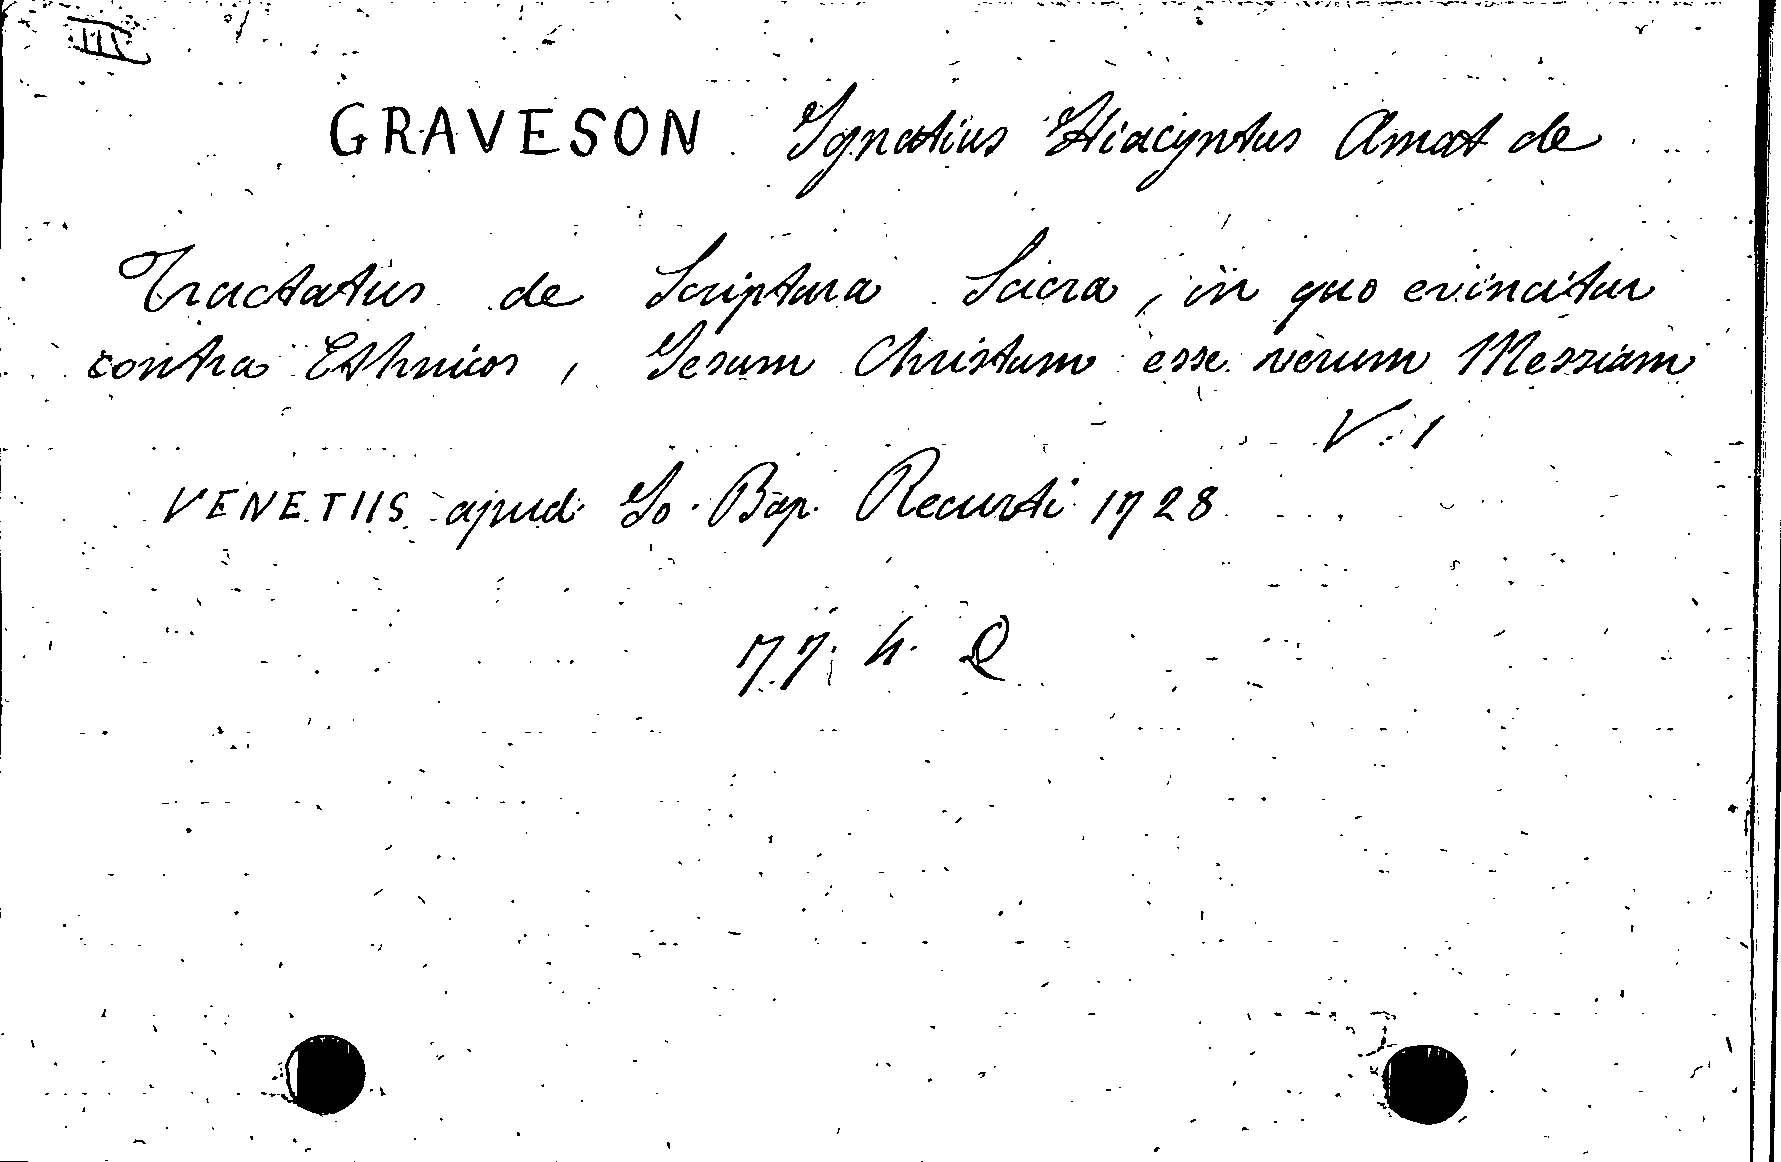 III
GRAVESON Ignatius Hiacyntus Amat de
Tractatus de Scriptura Sacra, in quo evincitur
contra Ethnicos, Jesum Christum esse verum Messiam
V. 1
VENETIIS apud Jo. Bap. Recurti 1728
77. 4. Q